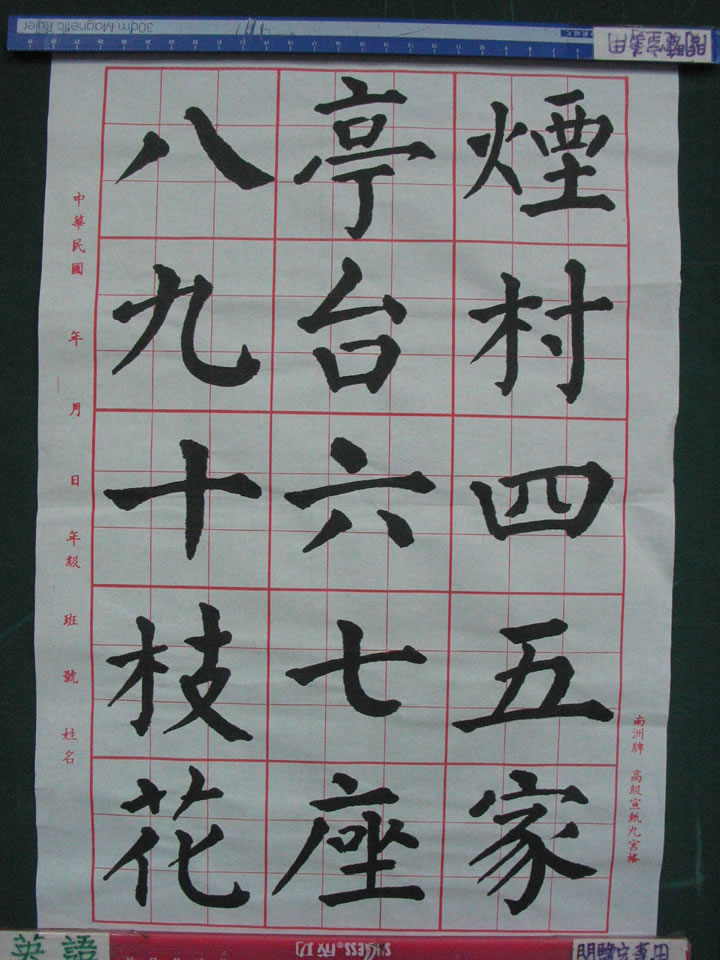 30cm Magnetic Ruler
閱覽室專用
煙村四五家
亭台六七座
八九十枝花
中華民國 年 月 日 年級 班 號 姓名
南洲牌 高級宣紙九宮格
英語
SUCCESS® 成功
閱覽室專用